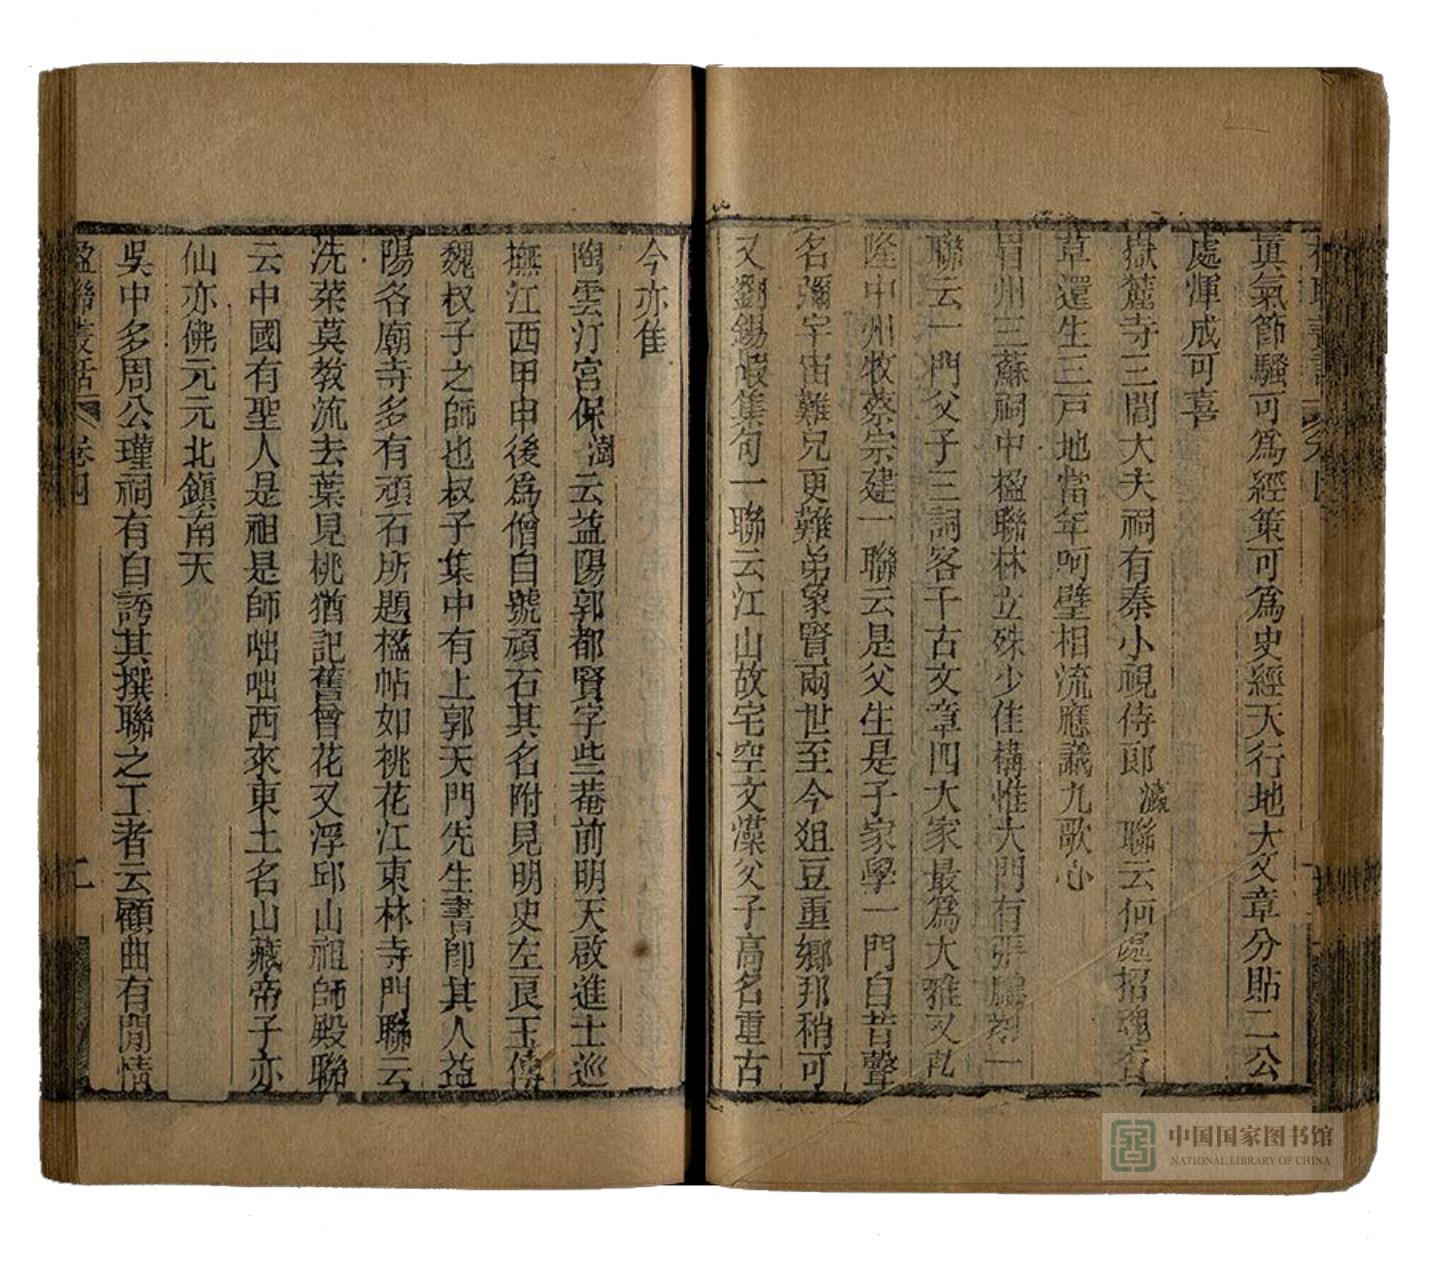 楹聯叢話 卷四
眞氣節騷可爲經策可爲史經天行地大文章分貼二公
處渾成可喜
嶽麓寺三閭大夫祠有秦小峴侍郎瀛聯云何處招魂香
草還生三戸地當年呵壁相流應識九歌心
眉州三蘇祠中楹聯林立殊少佳構惟大門有張鵬翮一
聯云一門父子三詞客千古文章四大家最爲大雅又乾
隆中州牧蔡宗建一聯云是父生是子家學一門自昔聲
名彌宇宙難兄更難弟象賢兩世至今俎豆重鄉邦稍可
又劉錫嘏集句一聯云江山故宅空文藻父子高名重古
今亦佳
陶雲汀宮保澍云益陽郭都賢字些菴前明天啟進士巡
撫江西甲申後爲僧自號頑石其名附見明史左良玉傳
魏叔子之師也叔子集中有上郭天門先生書卽其人益
陽各廟寺多有頑石所題楹帖如桃花江東林寺門聯云
洗菜莫教流去葉見桃猶記舊曾花又浮邱山祖師殿聯
云中國有聖人是祖是師咄咄西來東土名山藏帝子亦
仙亦佛元元北鎭南天
吳中多周公瑾祠有自誇其撰聯之工者云顧曲有閒情
楹聯叢話 卷四 二
中国国家图书馆
NATIONAL LIBRARY OF CHINA